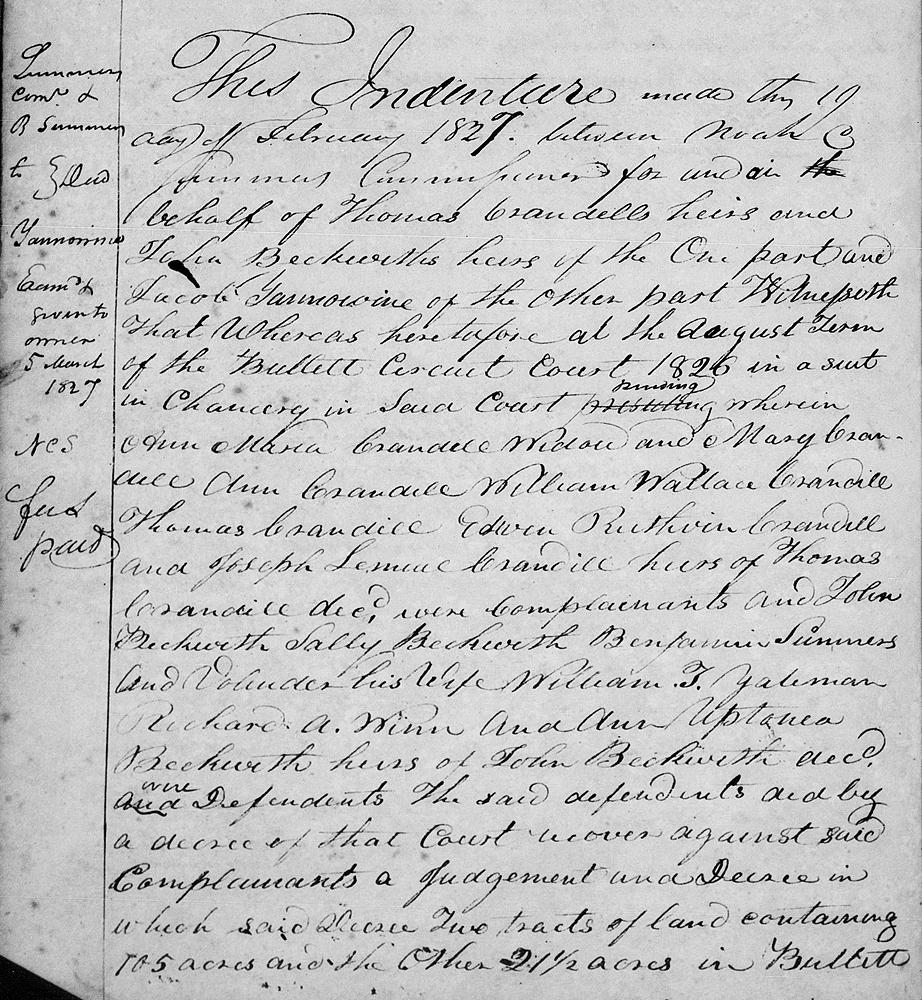 Summers
Comr. &
B Summers
to } Deed
Yannowine
Examd &
given to
owner
5 March
1827
NCS
fees
paid
This Indenture made thy 19
day of February 1827. between Noah C
Summers Commissioner for and in the
behalf of Thomas Crandells heirs and
John Beckwiths heirs of the One part and
Jacob Yannowine of the Other part Witnesseth
That Whereas heretofore at the August Term
of the Bullett Circuit Court 1826 in a suit
pending
in Chancery in Said Court wherein
Ann Maria Crandell Widow and Mary Cran-
dell Ann Crandell William Wallace Crandill
Thomas Crandill Edwin Ruthvin Crandill
and Joseph Lemuel Crandill heirs of Thomas
Crandill decd, were Complainants and John
Beckwith Sally Beckwith Benjamin Summers
and Volinder his Wife William T. Yateman
Richard A. Winn And Ann Uptonea
Beckwith heirs of John Beckwith decd.
were
and Defendents The said defendents did by
a decree of that Court recover against said
Complainants a Judgement and Decree in
which said Decree Two tracts of land containing
705 acres and the Other 21½ acres in Bullett